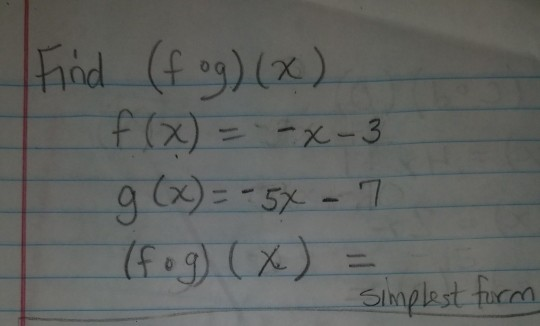 Find (f∘g)(x)
f(x) = -x-3
g(x) = -5x - 7
(f∘g)(x) =
simplest form